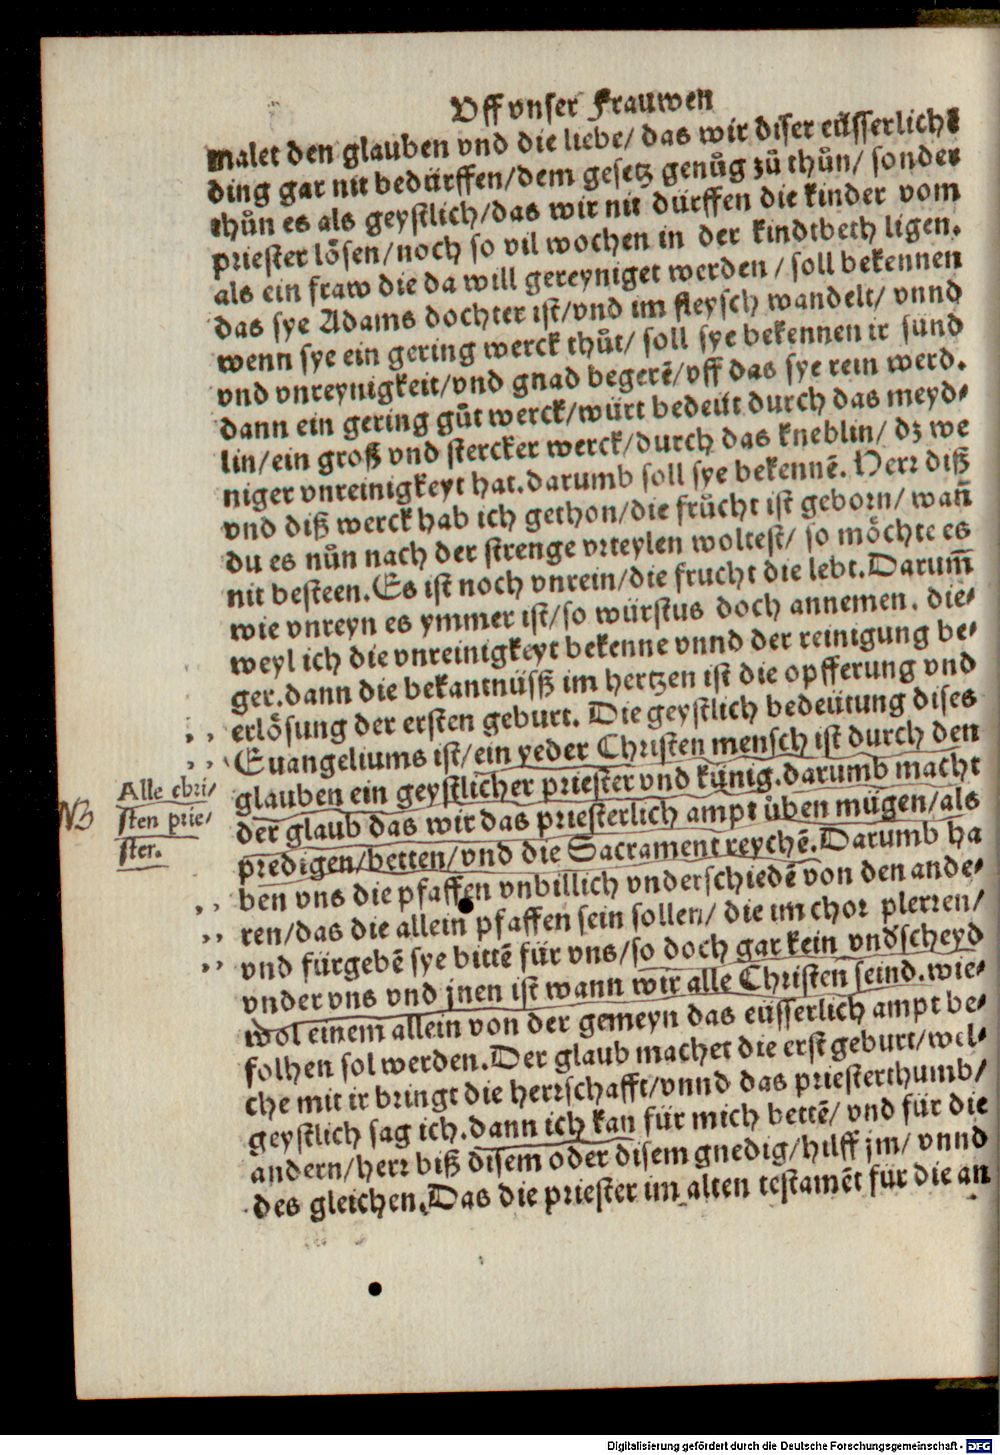 Vff vnser Frauwen
malet den glauben vnd die liebe/ das wir diser eüsserliche
ding gar nit bedürffen/dem gesetz genůg zů thůn/ sonder
thůn es als geystlich/das wir nit dürffen die kinder vom
priester lösen/noch so vil wochen in der kindtbeth ligen.
als ein fraw die da will gereyniget werden / soll bekennen
das sye Adams dochter ist/vnd im fleysch wandelt/ vnnd
wenn sye ein gering werck thůt/ soll sye bekennen ir sünd
vnd vnreynigkeit/vnd gnad begerē/vff das sye rein werd.
dann ein gering gůt werck/würt bedeüt durch das meyd⸗
lin/ein groß vnd stercker werck/durch das kneblin/ dz we
niger vnreinigkeyt hat.darumb soll sye bekennē. Herr diß
vnd diß werck hab ich gethon/die frůcht ist geborn/ wañ
du es nůn nach der strenge vrteylen woltest/ so möchte es
nit besteen.Es ist noch vnrein/die frucht die lebt.Darum̄
wie vnreyn es ymmer ist/so würstus doch annemen. die⸗
weyl ich die vnreinigkeyt bekenne vnnd der reinigung be⸗
ger.dann die bekantnüsß im hertzen ist die opfferung vnd
erlösung der ersten geburt. Die geystlich bedeütung dises
Euangeliums ist/ein yeder Christen mensch ist durch den
glauben ein geystlicher priester vnd künig.darumb macht
der glaub das wir das priesterlich ampt üben mügen/als
predigen/betten/vnd die Sacrament reychē.Darumb ha
ben vns die pfaffen vnbillich vnderschiedē von den ande⸗
ren/das die allein pfaffen sein sollen/ die im chor plerren/
vnd fürgebē sye bittē für vns/so doch gar kein vnd'scheyd
vnder vns vnd jnen ist wann wir alle Christen seind.wie⸗
wol einem allein von der gemeyn das eüsserlich ampt be⸗
folhen sol werden.Der glaub machet die erst geburt/wel⸗
che mit ir bringt die herrschafft/vnnd das priesterthumb/
geystlich sag ich.dann ich kan für mich bettē/ vnd für die
andern/herr biß disem oder disem gnedig/hilff jm/ vnnd
des gleichen.Das die priester im alten testamēt für die an
NB
Alle chri/
sten prie/
ster.
Digitalisierung gefördert durch die Deutsche Forschungsgemeinschaft - DFG